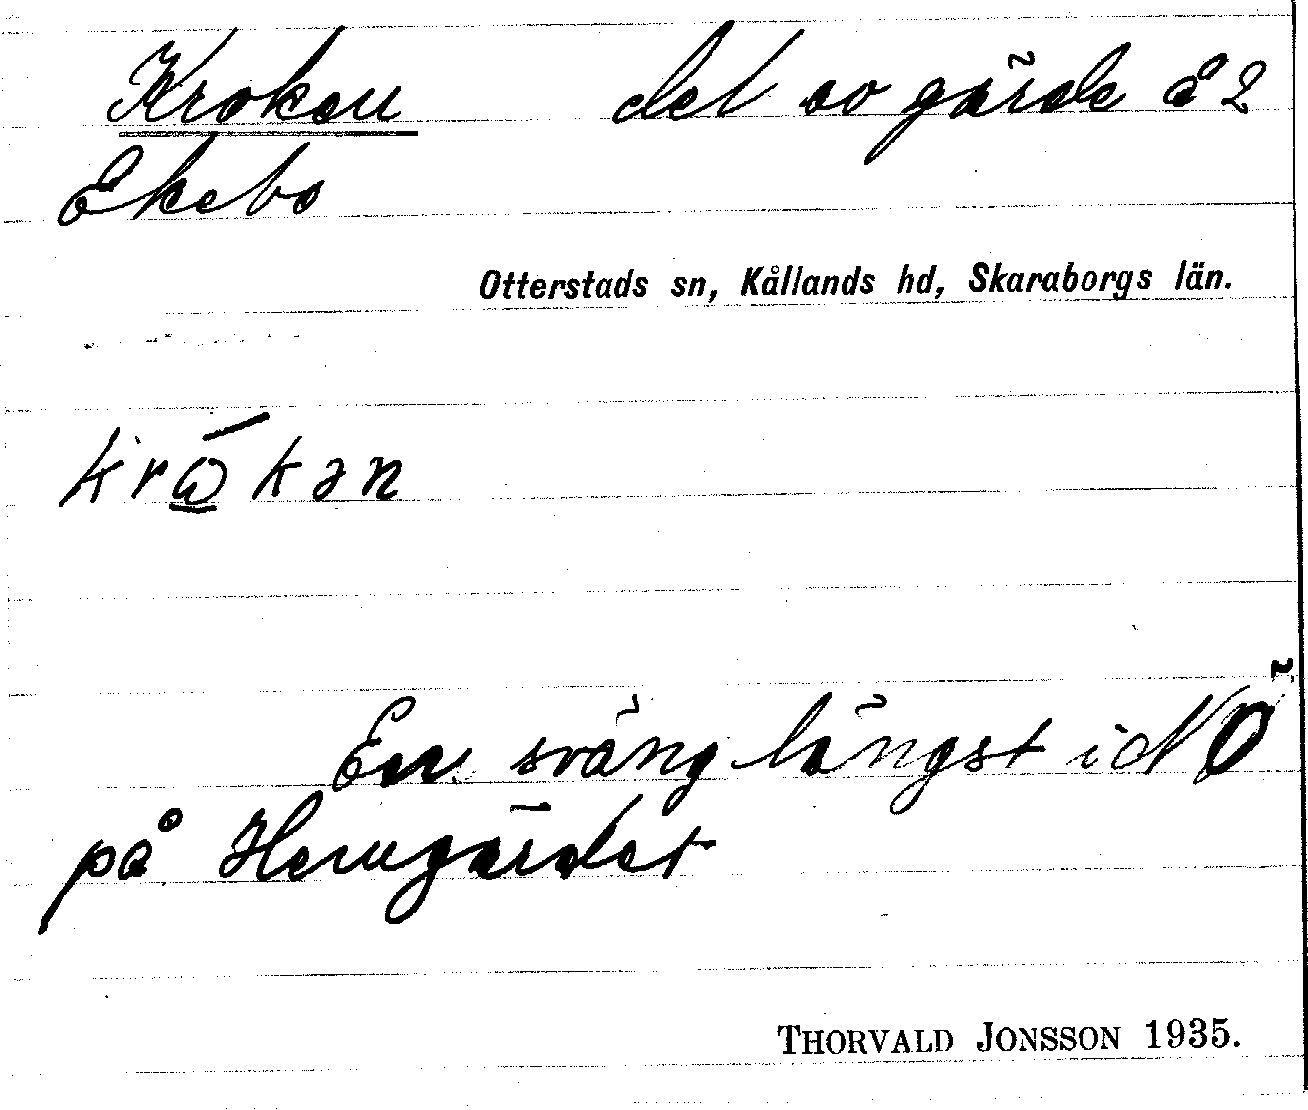 Kroken del av gärde å 2
Ekebo
Otterstads sn, Kållands hd, Skaraborgs län.
krώ̲kən
En sväng längst i NÖ
på Hemgärdet
THORVALD JONSSON 1935.